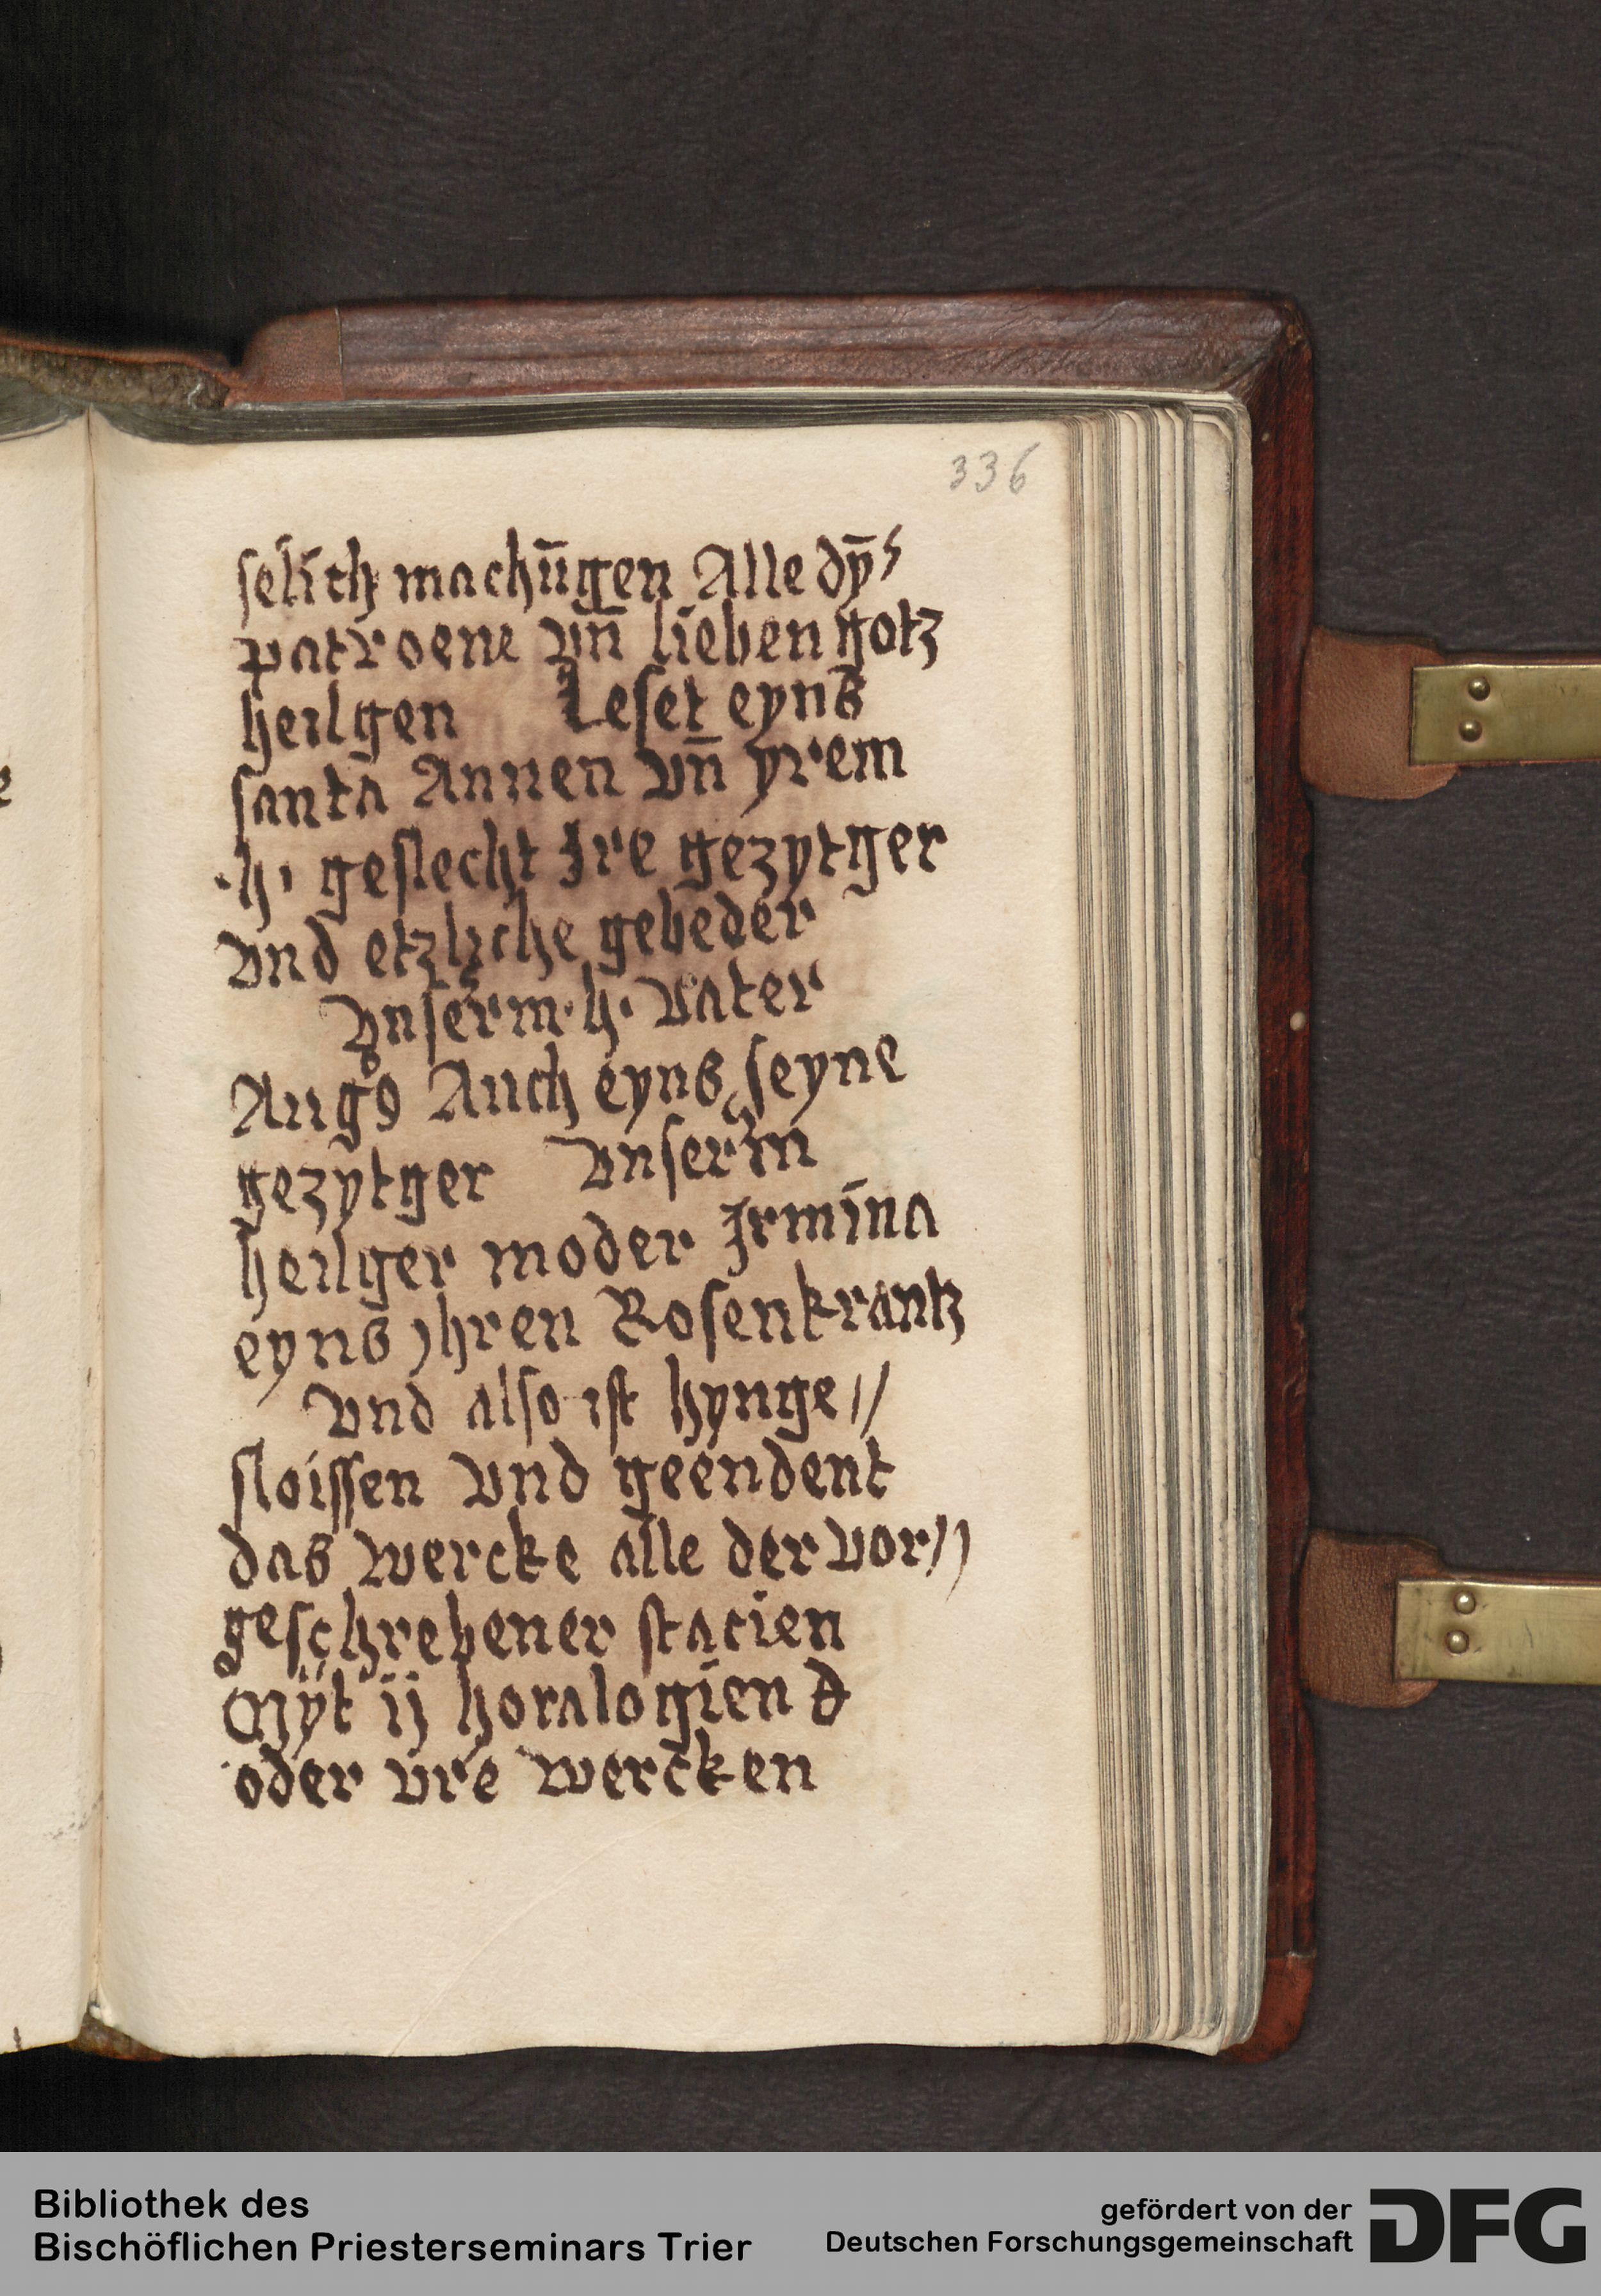 336
selich machūgen Alle dȳ⸗
patroene vn̄ lieben gotz
heilgen Leset eyns
santa Annen vn̄ yrem
·h· geslecht Ire gezytger
vnd etzliche gebeder
Vnserm ·h· vater
Augꝯ Auch eyns seyne
gezytger vnserm
heilger moder Irmina
eyns yhren Rosenkrantz
vnd also ist hynge//
sloissen vnd geendent
das wercke alle der vor//
geschrebener stacien
Mÿt ij horalogien d
oder vre wercken
Bibliothek des
Bischöflichen Priesterseminars Trier
gefördert von der
Deutschen Forschungsgemeinschaft
DFG